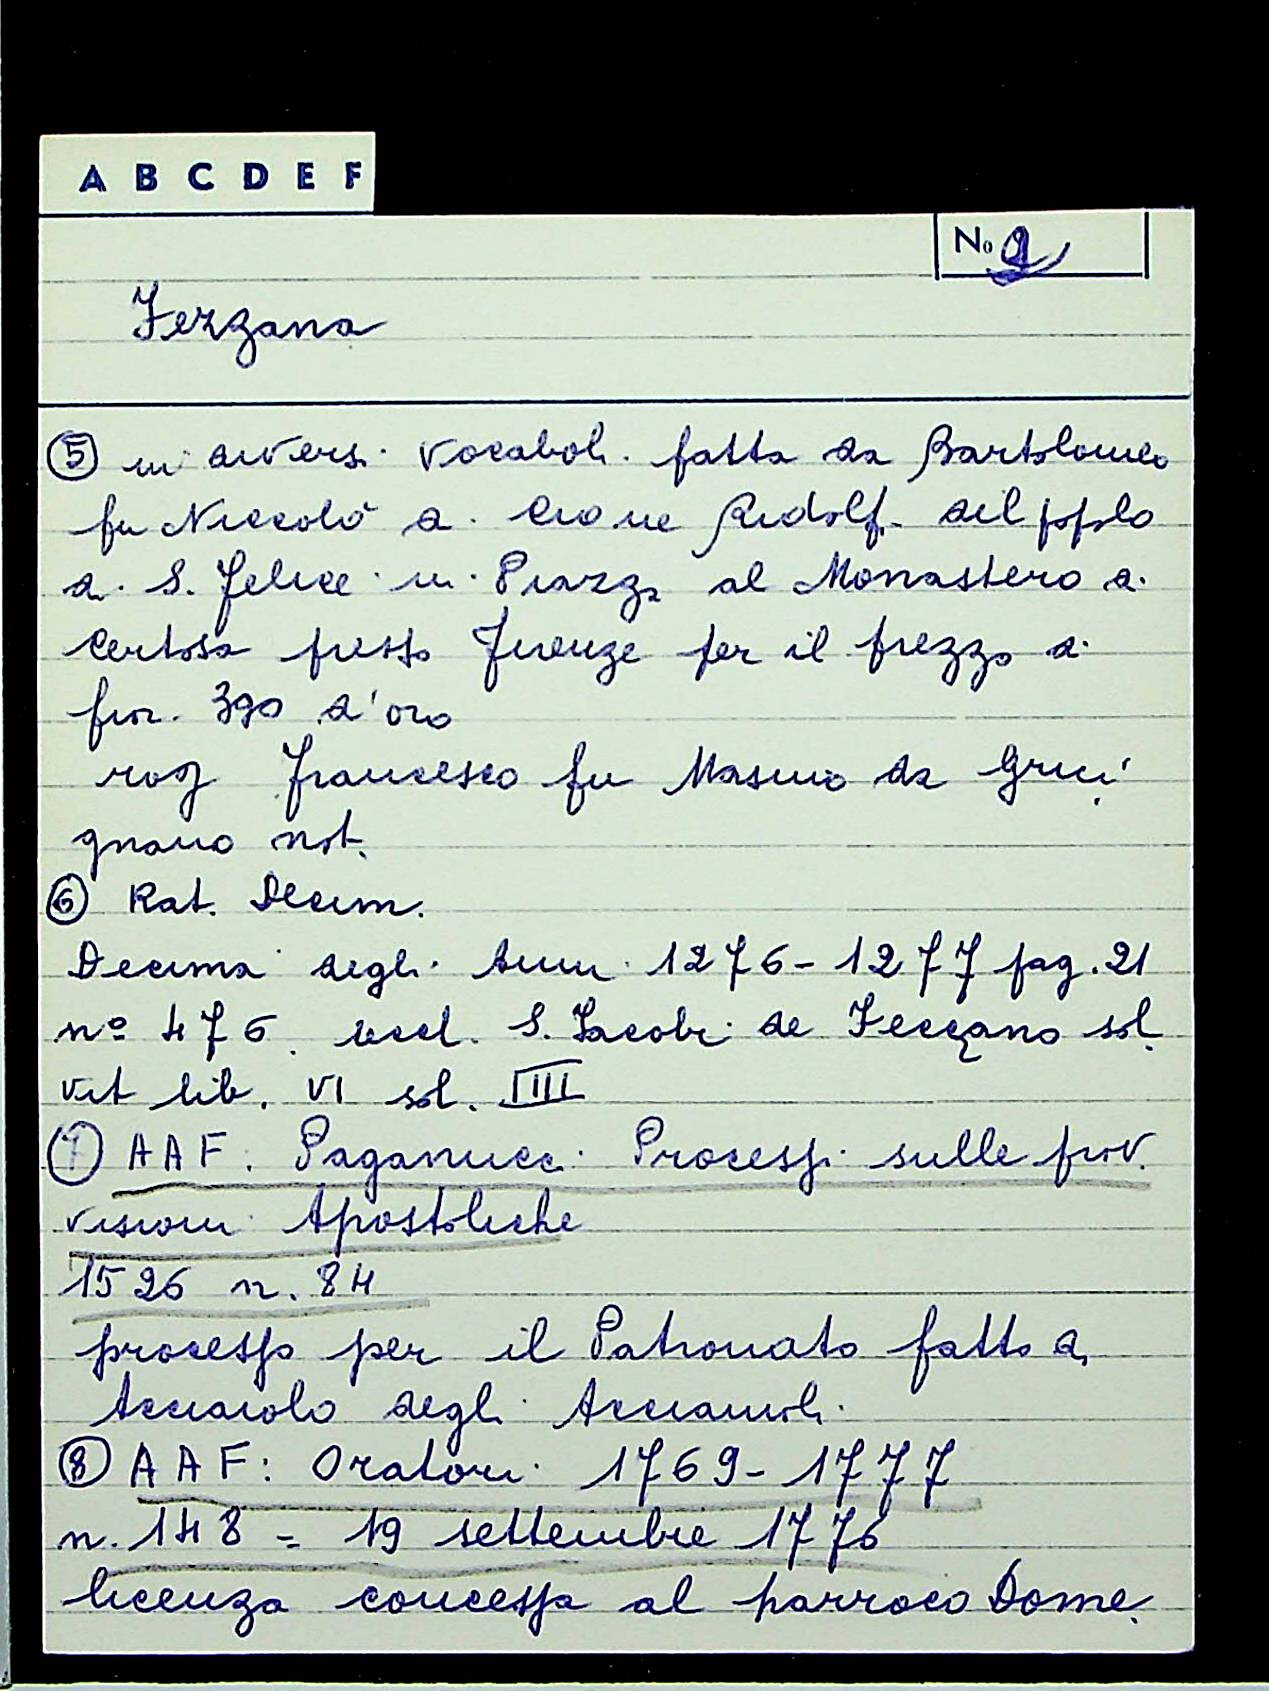 A B C D E F
No 2
Terzana
⑤ in diversi vocaboli fatta da Bartolomeo
fu Niccolò di Cione Ridolfi del popolo
di S. Felice in Piazza al Monastero di
Certosa presso Firenze per il prezzo di
fior. 390 d'oro
rog Francesco fu Masino da Gruci
gnano not.
⑥ Rat. Decim.
Decima degli Anni 1276-1277 pag. 21
nº 476. eccl. S. Iacobi de Terçano sol
vit lib. VI sol. III
⑦ AAF. Paganucci Processi sulle prov.
visioni Apostoliche
1526 n. 84
processo per il Patronato fatto da
Acciaiolo degli Acciaiuoli
⑧ AAF: Oratori 1769-1777
n. 148 = 19 settembre 1776
licenza concessa al parroco Dome.